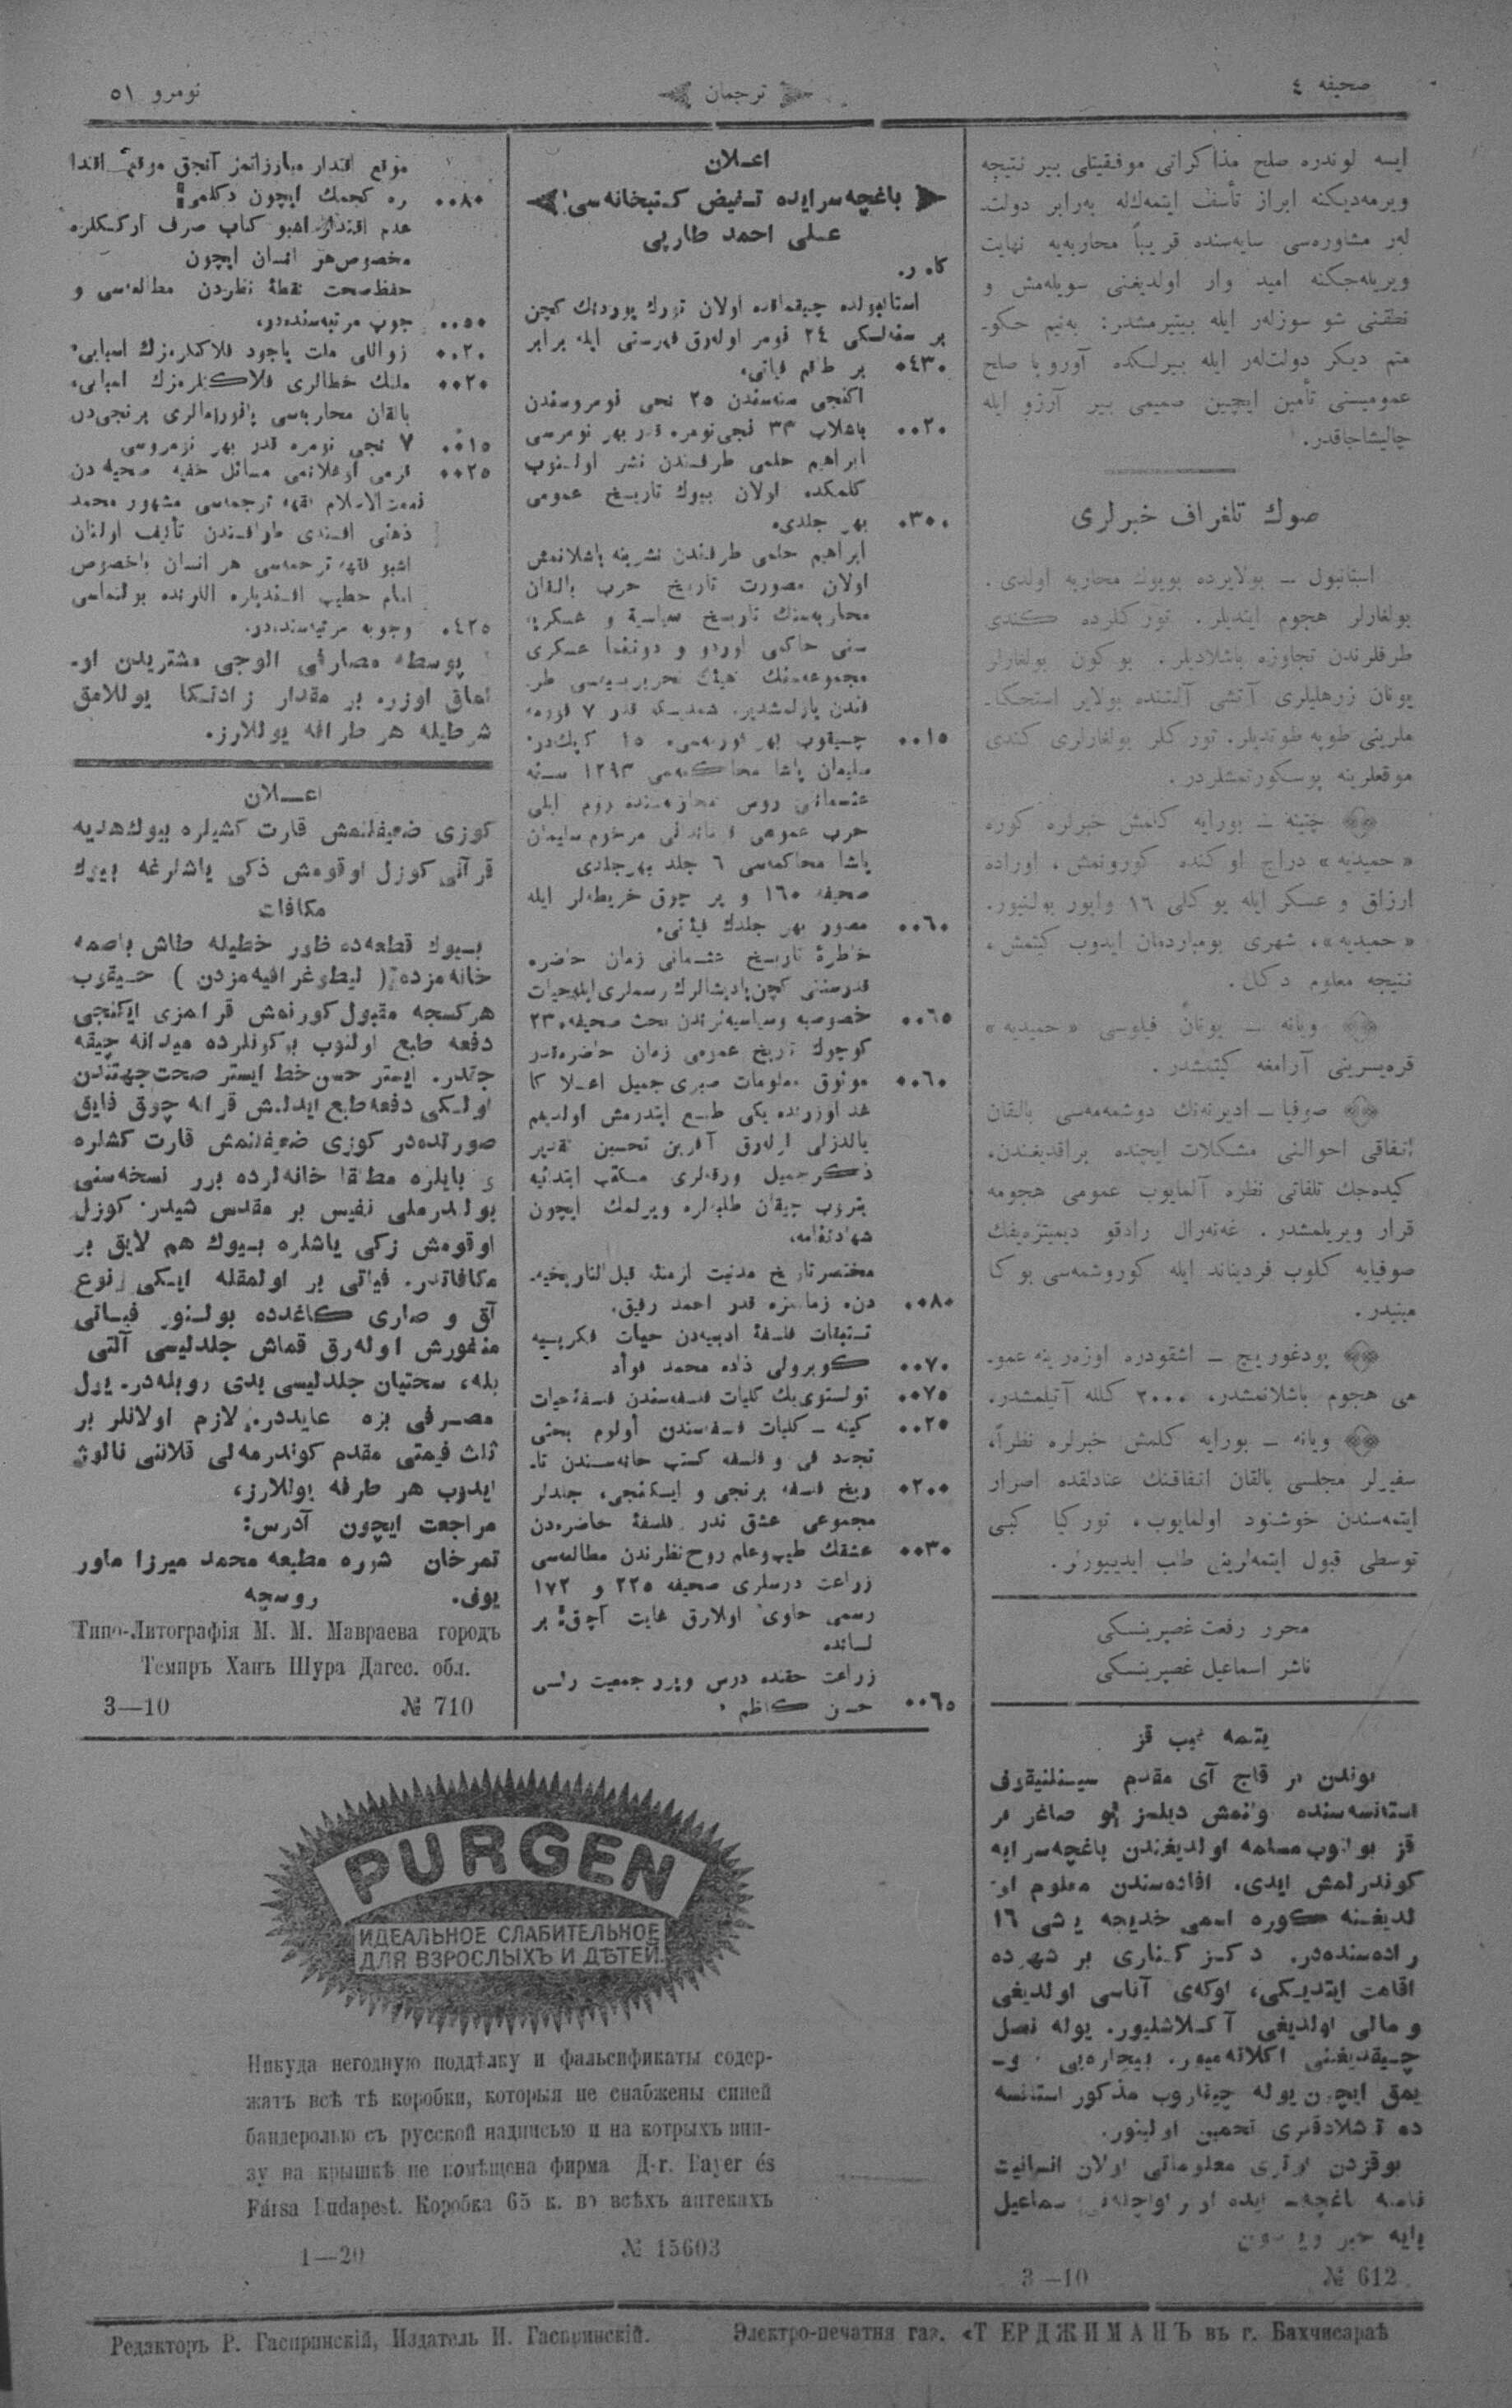 صحیفه ٤
ترجمان
نومرو ٥١
ایسه لوندره صلح مذاکراتی موفقیتلی بیر نتیجه
ویرمه‌دیکنه ابراز تأسف ایتمه‌ك‌له به‌رابر دولت‌
لەر مشاوره‌سی سایه‌سنده قریباً محاربه‌یه نهایت
ویریله‌جکنه امید وار اولدیغنی سویله‌مش و
نطقنی شو سوزلەر ایله بیتیرمشدر: به‌نیم حکو-
متم دیکر دولت‌لەر ایله بیرلکده آوروپا صلح
عمومیسنی تأمین ایچین صمیمی بیر آرزو ایله
چالیشاجاقدر.
صوك تلغراف خبرلری
استانبول — بولایرده بویوك محاربه اولدی.
بولغارلر هجوم ایتدیلر. تورکلرده کندی
طرفلرندن تجاوزه باشلادیلر. بوکون بولغارلر
یونان زرهلیلری آتشی آلتنده بولایر استحکا-
ملرینی طوپه طوتدیلر. تورکلر بولغارلری کندی
موقعلرینه پوسکورتمشلردر.
چتینه — بورایه کلمش خبرلره کوره
«حمیدیه» دراج اوکنده کورونمش، اوراده
ارزاق و عسکر ایله یوکلی ١٦ واپور بولنیور.
«حمیدیه»، شهری بومباردمان ایدوب کیتمش،
نتیجه معلوم دکل.
ویانه — یونان فیلوسی «حمیدیه»
قره‌یسرینی آرامغه کیتمشدر.
صوفیا — ادیرنه‌نك دوشمه‌مه‌سی بالقان
اتفاقی احوالنی مشکلات ایچنده براقدیغندن،
کیده‌جك تلفاتی نظره آلمایوب عمومی هجومه
قرار ویریلمشدر. غه‌نه‌رال رادقو دیمیتریه‌فك
صوفیایه کلوب فردیناند ایله کوروشمه‌سی بوکا
مبنیدر.
پودغوریچ — اشقودره اوزەرینه عمو-
می هجوم باشلانمشدر، ٣٠٠٠ کلله آتیلمشدر.
ویانه — بورایه کلمش خبرلره نظراً،
سفیرلر مجلسی بالقان اتفاقنك عنادلقده اصرار
ایتمه‌سندن خوشنود اولمایوب، تورکیا کبی
توسطی قبول ایتمه‌لرینی طلب ایدییورلر.
محرر رفعت غصپرینسکی
ناشر اسماعیل غصپرینسکی
قز
بوندن بر قاچ آی مقدم
استانسه‌سنده دیلسز صاغر بر
قز بولنوب مسلمه اولدیغندن باغچه‌سرایه
کوندرلمش ایدی. افاده‌سندن معلوم او-
لدیغنه کوره اسمی خدیجه یشی ١٦
راده‌سنده‌در. دکز کناری بر شهرده
اقامت ایتدیکی، اوکه‌ی آناسی اولدیغی
و مالی اولدیغی آکلاشلیور. یوله نصل
چیقدیغنی اکلانه‌میور.
ایچون یوله چیقاروب مذکور استانسه
ده تخمین اولنیور.
بوقزدن اوتری معلوماتی اولان انسانیت
نامنه
3—10 № 612
اعلان
باغچه‌سرایده کتبخانه‌سی
علی احمد طارپی
استانبولده چیقماقده اولان تورك یوردینك کچن
بر سنه‌لیکی ٢٤ نومر اوله‌رق فهرستی ایله برابر
بر طاقم فیاتی. ٠٤٣٠
اکنجی سنه‌سندن ٢٥ نجی نومروسندن
باشلاب ٣٣ نجی نومره قدر بهر نومرسی ٠٠٢٠
ابراهیم حلمی طرفندن نشر اولنوب
کلمکده اولان بیوك تاریخ عمومی
بهر جلدی. ٠٣٠٠
ابراهیم حلمی طرفندن نشرینه باشلانمش
اولان مصورت تاریخ حرب بالقان
محاربه‌سنك تاریخ سیاسیه و عسکریه
سنی حاکی اوردو و دوننما عسکری
مجموعه‌سنك هیئت تحریریه‌سی طر-
فندن یازلمشدیر. شمدییه قدر ٧
چیقوب بهر ١٥ کپك‌در. ٠٠١٥
سلیمان پاشا محاکمه‌سی ١٢٩٣ سنه
عثمانی روس محاربه‌سنده روم ایلی
حرب عمومی قماندانی مرحوم سلیمان
پاشا محاکمه‌سی ٦ جلد بهر جلدی
صحیفه ١٦٠ و بر چوق خریطه‌لر ایله
مصور بهر جلدك فیاتی. ٠٠٦٠
خاطرۀ تاریخ عثمانی زمان حاضره
خصوصیه وسیاسیه‌لرندن بحث صحیفه ٢٣٠ ٠٠٦٥
کوچوك تاریخ عمومی زمان حاضره‌قدر
موثوق معلومات صبری جمیل اعلا کا ٠٠٦٠
غد اوزرنده یکی طبع ایتدرمش اولدیغم
یالدزلی اوله‌رق آفرین تحسین تقدیر
ذکرجمیل ورقه‌لری مکتب ابتدائیه
بتروب چیقان طلبه‌لره ویرلمك ایچون
شهادتنامه.
مختصر تاریخ مدنیت ازمنۀ قبل‌التاریخیه
دن زمانمزه قدر احمد رفیق. ٠٠٨٠
تتبعات فلسفۀ ادبیه‌دن حیات فکریییه
کوپرولی زاده محمد فواد ٠٠٧٠
تولستوی‌بك کلیات فلسفه‌سندن فلسفۀحیات ٠٠٧٥
کلیات فلسفه‌سندن أولوم بحثی ٠٠٢٥
تجدد فی و فلسفه کتب خانه‌سندن تا-
ریخ فلسفه برنجی و ایکنجی جلدلر ٠٢٠٠
مجموعی عشق ندر فلسفۀ حاضره‌دن
عشقك طیب‌وعلم روح نظرندن مطالعه‌سی ٠٠٣٠
زراعت درسلری صحیفه ٢٢٥ و ١٧٢
رسمی حاوی اولارق غایت آچق بر
لسانده
زراعت حقنده درس ویرر جمعیت رئیسی
حسن کاظم ٠٠٦٥
موقع اقتدار مبارزاتمز آنجق موقع اقتدا
ره کچمك ایچون دکلمی؟ ٠٠٨٠
عدم اقتدار اشبو کتاب صرف ارککلره
مخصوص هر انسان ایچون
حفظ‌صحت نقطۀ نظردن مطالعه‌سی و
مرتبه‌سنده‌در. ٠٠٥٠
زواللی ملت یاخود فلاکتلرمزك اسبابی ٠٠٢٠
ملتك خطالری فلاکتلرمزك اسبابی ٠٠٢٠
بالقان محاربه‌سی برنجی‌دن
٧ نجی نومره قدر بهر نومروسی ٠٠١٥
مسائل خفیه ٠٠٢٥
نعمت‌الاسلام ترجمه‌سی مشهور محمد
ذهنی افندی طرافندن تألیف اولنان
اشبو ترجمه‌سی هر انسان باخصوص
امام خطیب افندیلره اللرنده بولنماسی
وجوبه مرتبه‌سنده‌در. ٠٤٢٥
پوسطه مصارفی الوجی مشتریدن او-
لماق اوزره بر مقدار زادتکا یوللامق
شرطیله هر طرافه یوللارز.
اعلان
کوزی ضعیفلنمش قارت کشیلره بیوك‌هدیه
قرآنی کوزل اوقومش ذکی یاشلرغه بیوك
مکافات
بیوك قطعه‌ده خطیله طاش باصمه
خانه‌مزده (لیطوغرافیه‌مزدن) چیقوب
هرکسجه مقبول کورنمش قرانمزی ایکنجی
دفعه طبع اولنوب بوکونلرده میدانه چیقه
جقدر. ایستر حسن خط ایستر صحت جهتندن
اولکی دفعه طبع ایدلمش قرانه چوق فایق
صورتده‌در کوزی ضعیفلنمش قارت کشلره
و بایلره مطلقا خانه‌لرده برر نسخه‌سنی
بولدرملی نفیس بر مقدس شیدر. کوزل
اوقومش زکی یاشلره بیوك هم لایق بر
مکافاتدر. فیاتی بر اولمقله ایکی نوع
آق و صاری کاغدده بولنور فیاتی
منفورش اوله‌رق قماش جلدلیسی آلتی
بله، سختیان جلدلیسی یدی روبله‌در. یول
مصرفی بزه عایددر. لازم اولانلر بر
ثلث قیمتی مقدم کوندرمه‌لی قلاننی نالوژ
ایدوب هر طرفه یوللارز،
مراجعت ایچون آدرس:
تمرخان شوره مطبعه محمد میرزا ماور
یوف. روسچه
Типо-Литографія М. М. Мавраева городъ
Темиръ Ханъ Шура Дагес. обл.
3—10 № 710
PURGEN
ИДЕАЛЬНОЕ СЛАБИТЕЛЬНОЕ
ДЛЯ ВЗРОСЛЫХЪ И ДѢТЕЙ.
Никуда негодную поддѣлку и фальсификаты содер-
жатъ всѣ тѣ коробки, которыя не снабжены синей
бандеролью съ русской надписью и на котрыхъ вни-
зу на крышкѣ не помѣщена фирма Д-r. Bayer és
Fársa Budapest. Коробка 65 к. во всѣхъ аптекахъ
1—20 № 15603
Редакторъ Р. Гаспринскій, Издатель И. Гаспринскій.
Электро-печатня газ. «ТЕРДЖИМАНЪ въ г. Бахчисараѣ